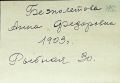 Безполетова
Анна Федоровна
1903 г.
Рыбная 30.